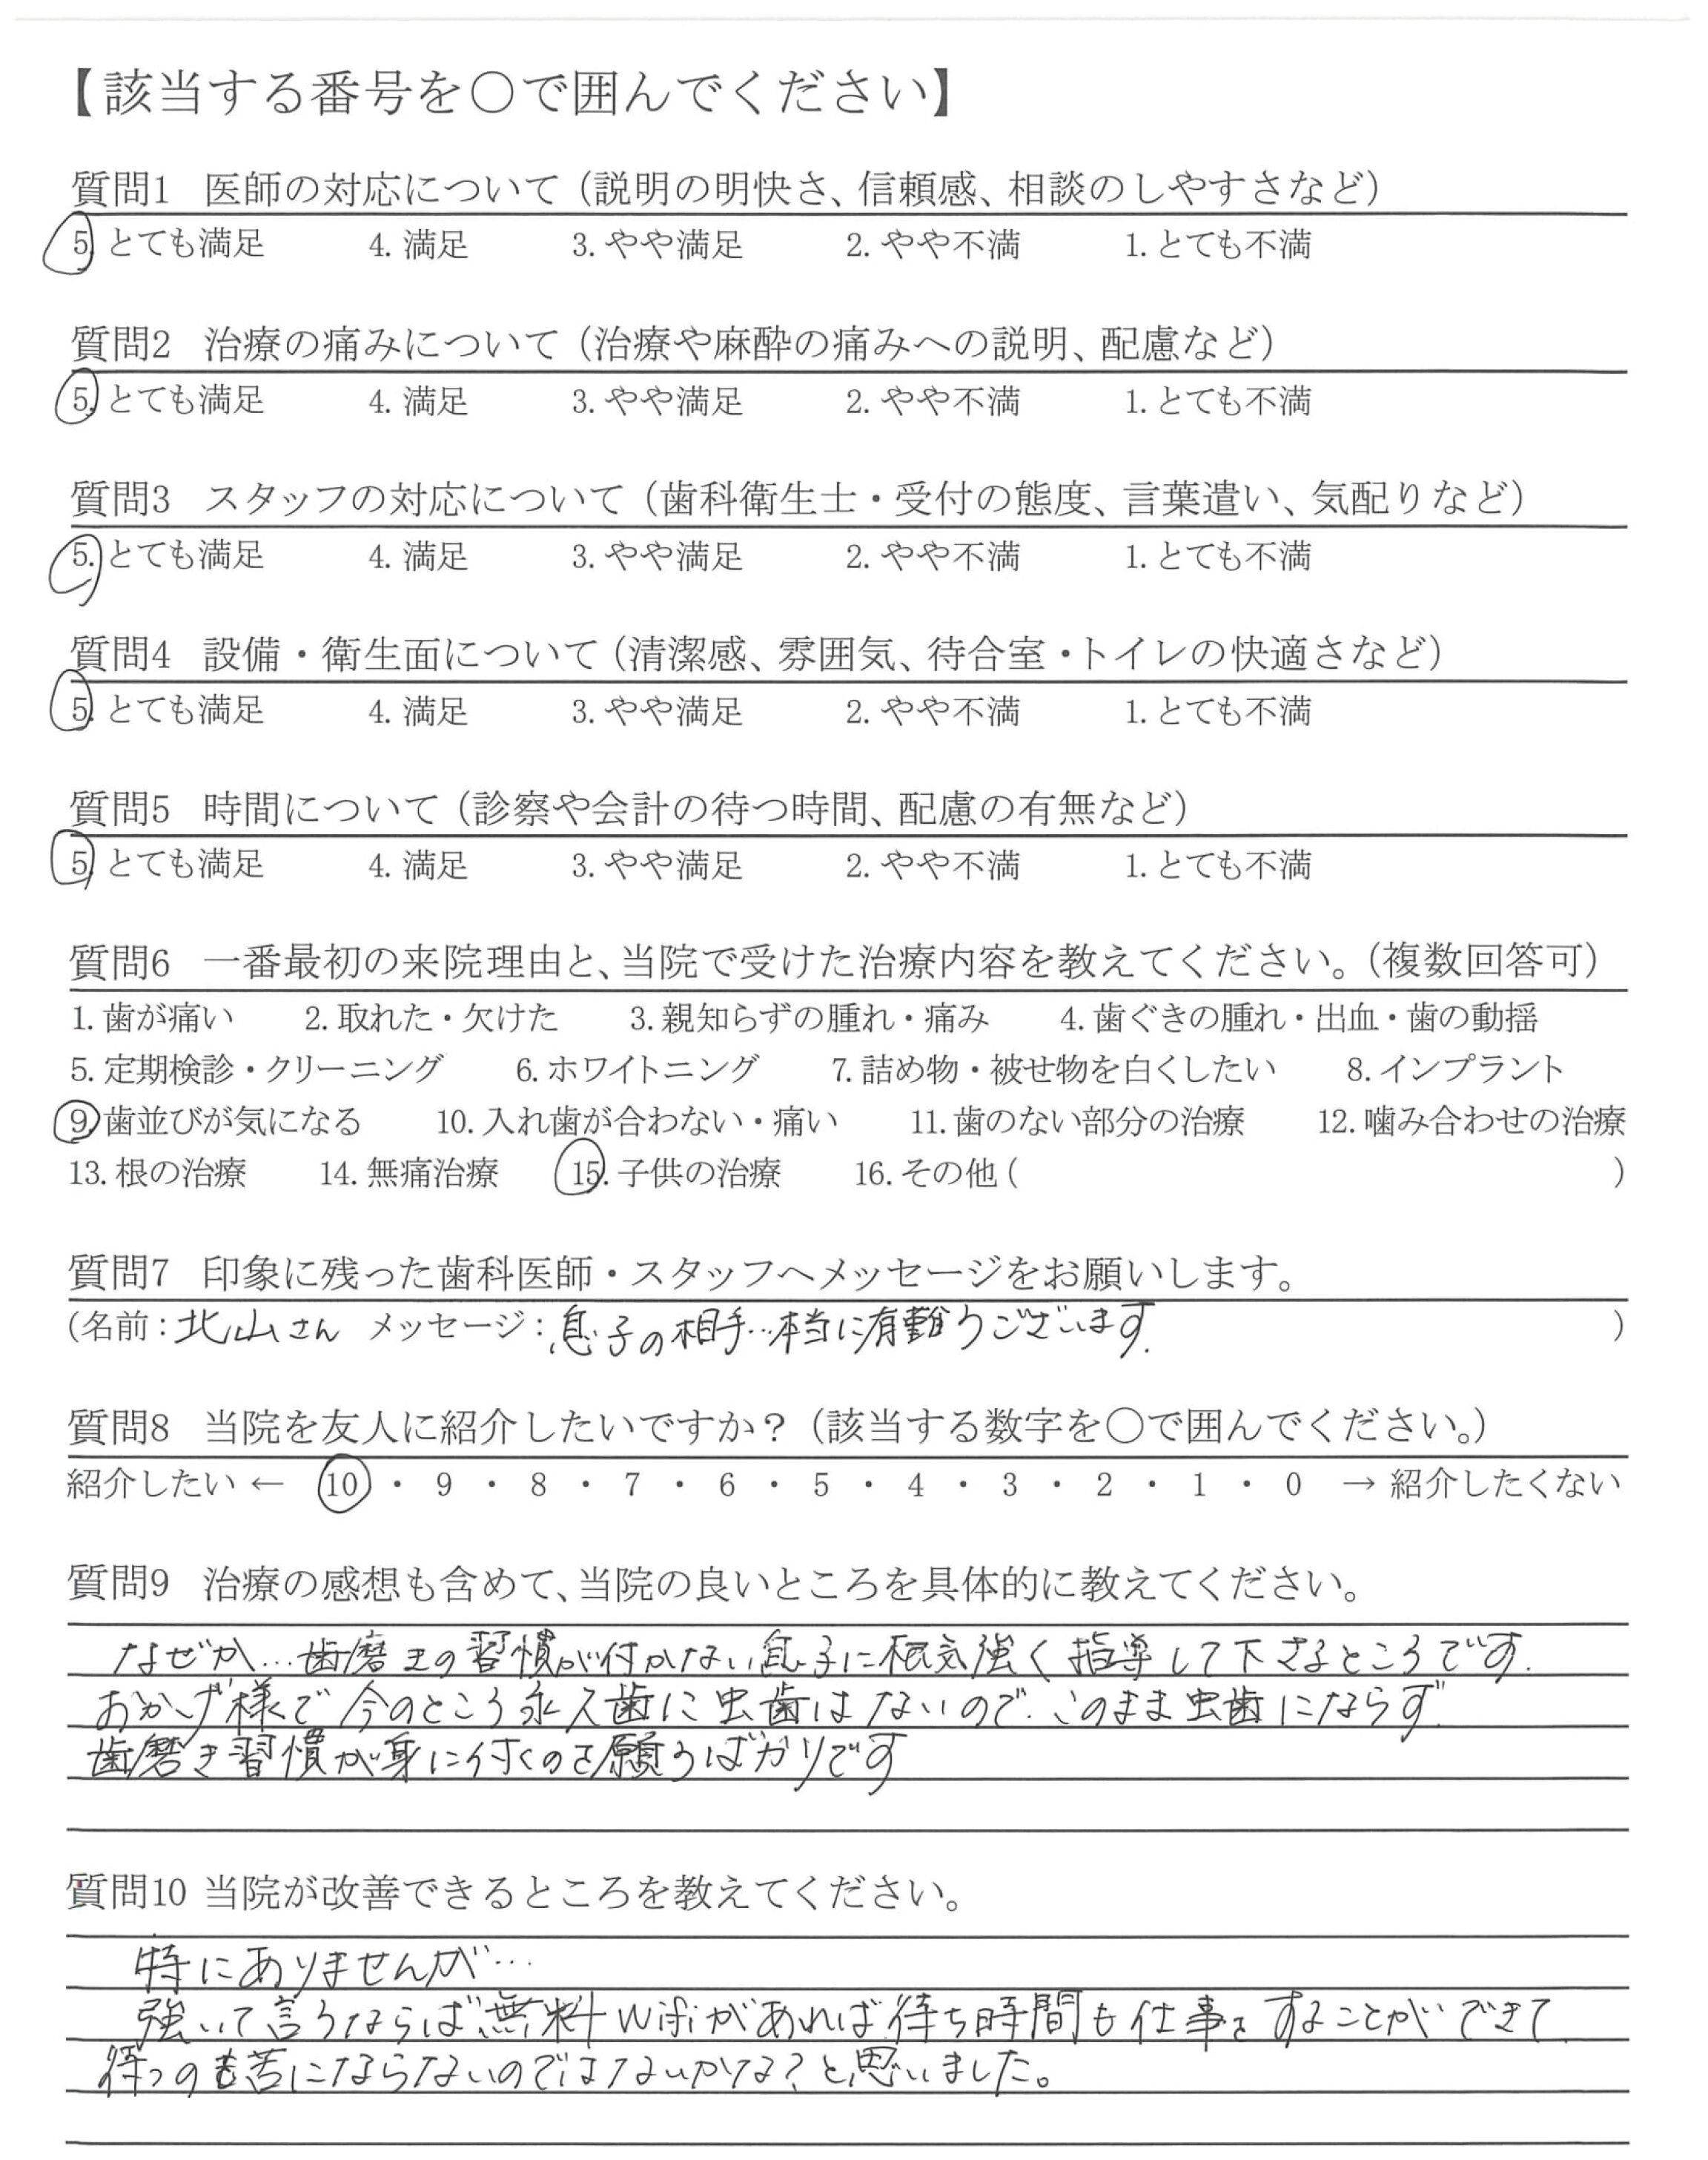 【該当する番号を〇で囲んでください】
質問1 医師の対応について（説明の明快さ、信頼感、相談のしやすさなど）
5. とても満足 4. 満足 3. やや満足 2. やや不満 1. とても不満
質問2 治療の痛みについて（治療や麻酔の痛みへの説明、配慮など）
5. とても満足 4. 満足 3. やや満足 2. やや不満 1. とても不満
質問3 スタッフの対応について（歯科衛生士・受付の態度、言葉遣い、気配りなど）
5. とても満足 4. 満足 3. やや満足 2. やや不満 1. とても不満
質問4 設備・衛生面について（清潔感、雰囲気、待合室・トイレの快適さなど）
5. とても満足 4. 満足 3. やや満足 2. やや不満 1. とても不満
質問5 時間について（診察や会計の待つ時間、配慮の有無など）
5. とても満足 4. 満足 3. やや満足 2. やや不満 1. とても不満
質問6 一番最初の来院理由と、当院で受けた治療内容を教えてください。（複数回答可）
1. 歯が痛い 2. 取れた・欠けた 3. 親知らずの腫れ・痛み 4. 歯ぐきの腫れ・出血・歯の動揺
5. 定期検診・クリーニング 6. ホワイトニング 7. 詰め物・被せ物を白くしたい 8. インプラント
9. 歯並びが気になる 10. 入れ歯が合わない・痛い 11. 歯のない部分の治療 12. 噛み合わせの治療
13. 根の治療 14. 無痛治療 15. 子供の治療 16. その他（ ）
質問7 印象に残った歯科医師・スタッフへメッセージをお願いします。
（名前：北山さん メッセージ：息子の相手…本当に有難うございます. ）
質問8 当院を友人に紹介したいですか？（該当する数字を〇で囲んでください。）
紹介したい ← 10 ・ 9 ・ 8 ・ 7 ・ 6 ・ 5 ・ 4 ・ 3 ・ 2 ・ 1 ・ 0 → 紹介したくない
質問9 治療の感想も含めて、当院の良いところを具体的に教えてください。
なぜか…歯磨きの習慣が付かない息子に根気強く指導して下さるところです.
おかげ様で今のところ永久歯に虫歯はないので.このまま虫歯にならず
歯磨き習慣が身に付くのを願うばかりです
質問10 当院が改善できるところを教えてください。
特にありませんが…
強いて言うならば無料wifiがあれば待ち時間も仕事をすることができて
待つのも苦にならないのではないかな？と思いました。